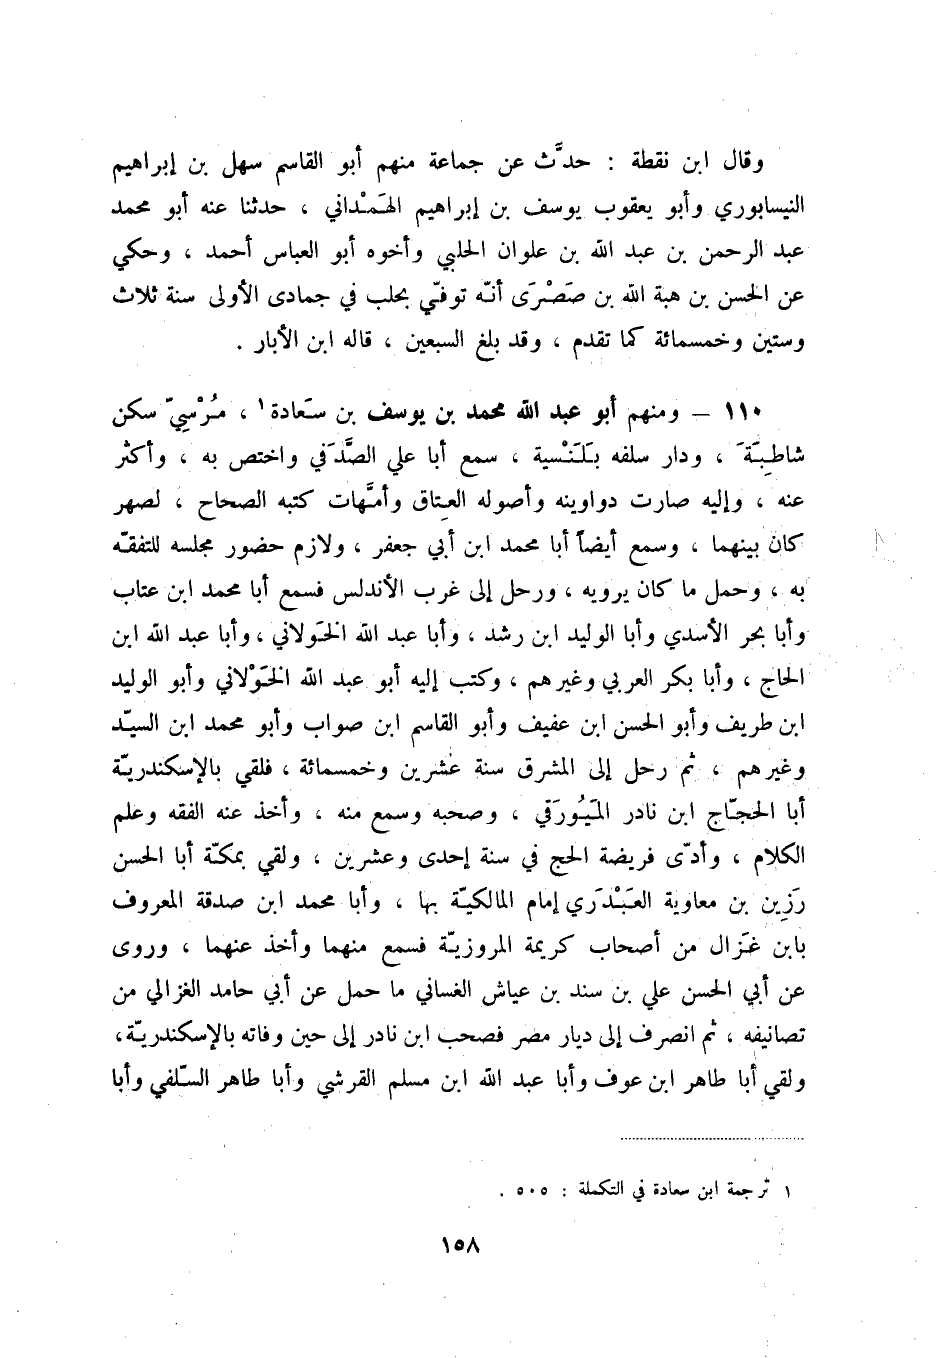 وقال ابن نقطة : حدَّث عن جماعة منهم أبو القاسم سهل بن إبراهيم
النيسابوري وأبو يعقوب يوسف بن إبراهيم الهَمْداني ، حدثنا عنه أبو محمد
عبد الرحمن بن عبد الله بن علوان الحلبي وأخوه أبو العباس أحمد ، وحكي
عن الحسن بن هبة الله بن صَصْرَى أنّه توفّي بحلب في جمادى الأولى سنة ثلاث
وستين وخمسمائة كما تقدم ، وقد بلغ السبعين ، قاله ابن الأبار .
١١٠ – ومنهم أبو عبد الله محمد بن يوسف بن سَعادة١ ، مُرْسِيّ سكن
شاطِبَةَ ، ودار سلفه بَلَنْسية ، سمع أبا علي الصَّدَفي واختص به ، وأكثر
عنه ، وإليه صارت دواوينه وأصوله العِتاق وأمَّهات كتبه الصحاح ، لصهر
كان بينهما ، وسمع أيضاً أبا محمد ابن أبي جعفر ، ولازم حضور مجلسه للتفقّه
به ، وحمل ما كان يرويه ، ورحل إلى غرب الأندلس فسمع أبا محمد ابن عتاب
وأبا بحر الأسدي وأبا الوليد ابن رشد ، وأبا عبد الله الخَولاني ، وأبا عبد الله ابن
الحاج ، وأبا بكر العربي وغيرهم ، وكتب إليه أبو عبد الله الخَوْلاني وأبو الوليد
ابن طريف وأبو الحسن ابن عفيف وأبو القاسم ابن صواب وأبو محمد ابن السيّد
وغيرهم ، ثم رحل إلى المشرق سنة عشرين وخمسمائة ، فلقي بالإسكندريّة
أبا الحجّاج ابن نادر المَيُورَقي ، وصحبه وسمع منه ، وأخذ عنه الفقه وعلم
الكلام ، وأدّى فريضة الحج في سنة إحدى وعشرين ، ولقي بمكّة أبا الحسن
رَزِين بن معاوية العَبْدَري إمام المالكيّة بها ، وأبا محمد ابن صدقة المعروف
بابن غَزال من أصحاب كريمة المروزيّة فسمع منهما وأخذ عنهما ، وروى
عن أبي الحسن علي بن سند بن عياش الغساني ما حمل عن أبي حامد الغزالي من
تصانيفه ، ثم انصرف إلى ديار مصر فصحب ابن نادر إلى حين وفاته بالإسكندريّة،
ولقي أبا طاهر ابن عوف وأبا عبد الله ابن مسلم القرشي وأبا طاهر السّلفي وأبا
١ ترجمة ابن سعادة في التكملة : ٥٠٥ .
١٥٨